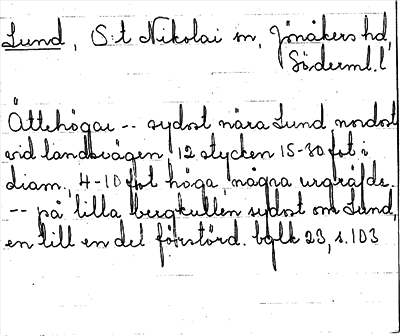 Lund, S:t Nikolai sn, Jönåkers hd,
Söderml. l
Ättehögar -- sydost nära Lund nordost
vid landsvägen, 12 stycken 15-30 fot i
diam, 4-10 fot höga, några urgräfde.
-- på lilla bergkullen sydost om Lund,
en till en del förstörd. bglk 23, s. 103